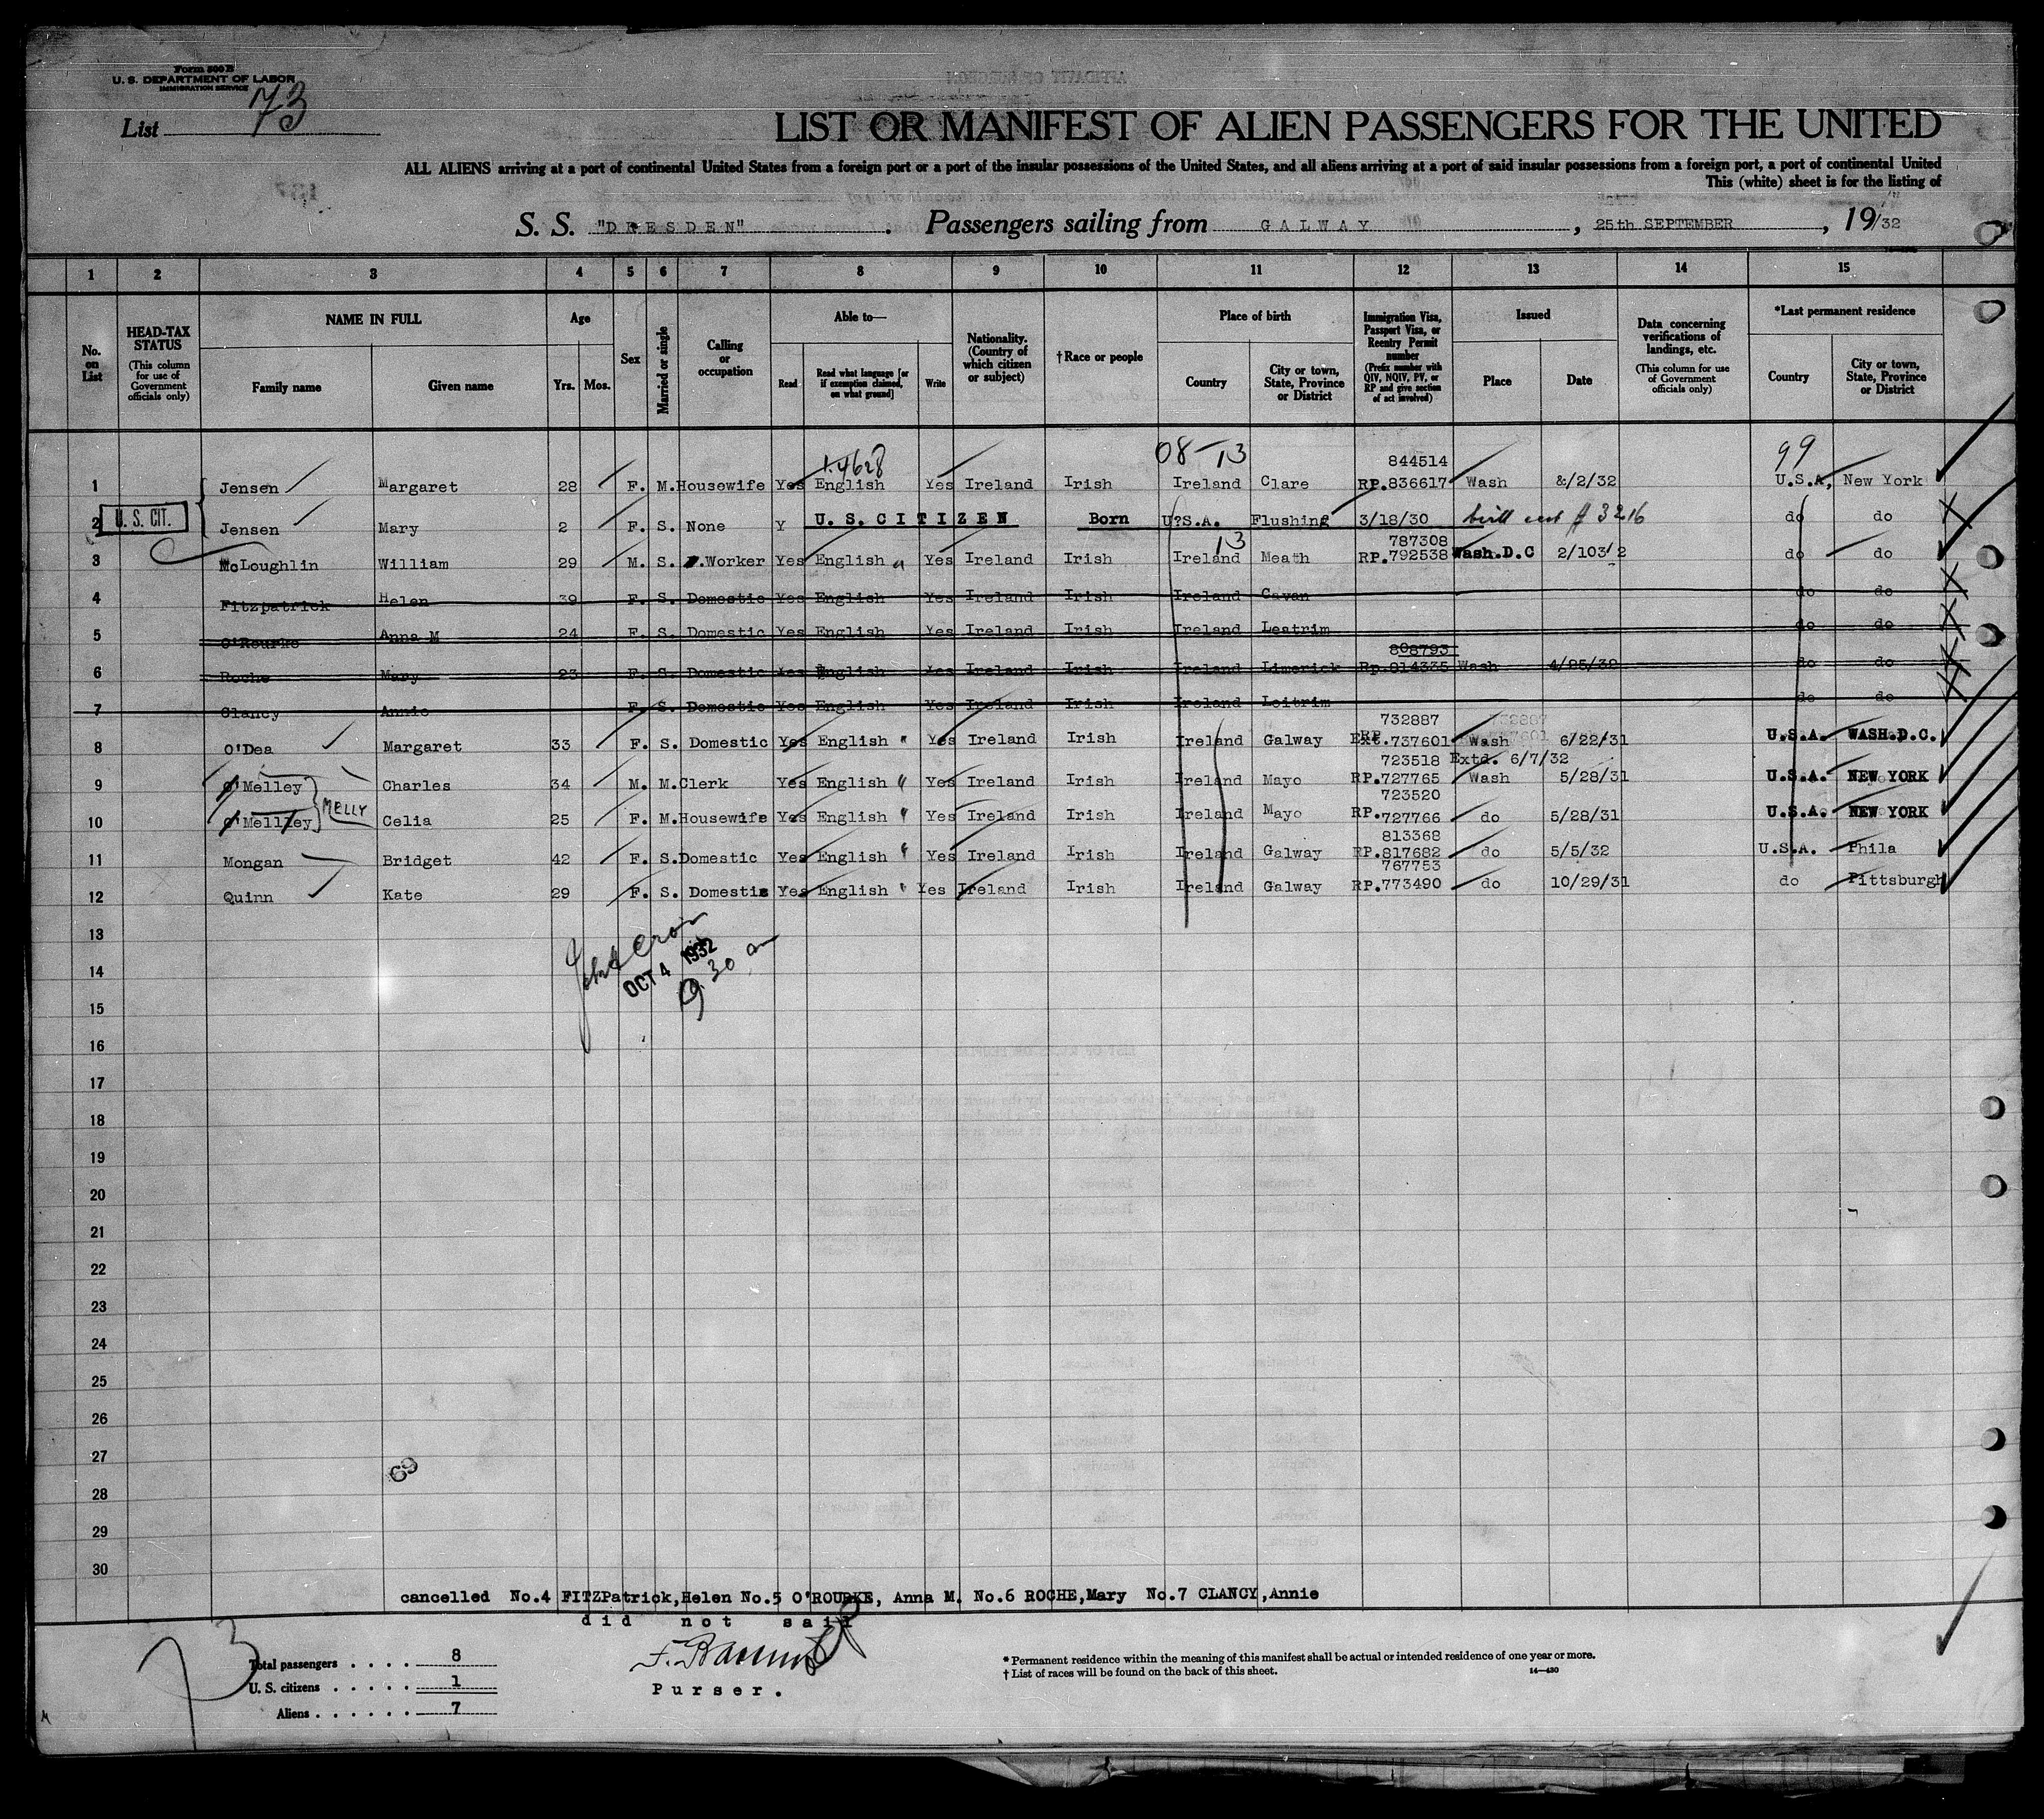 Form 500 B
U. S. DEPARTMENT OF LABOR
IMMIGRATION SERVICE
List 73
LIST OR MANIFEST OF ALIEN PASSENGERS FOR THE UNITED
ALL ALIENS arriving at a port of continental United States from a foreign port or a port of the insular possessions of the United States, and all aliens arriving at a port of said insular possessions from a foreign port, a port of continental United
This (white) sheet is for the listing of
S. S. "DRESDEN" . Passengers sailing from GALWAY , 25th SEPTEMBER , 19/32
1 2 3 4 5 6 7 8 9 10 11 12 13 14 15
No. on List
HEAD-TAX STATUS (This column for use of Government officials only)
NAME IN FULL Family name Given name
Age Yrs. Mos.
Sex
Married or single
Calling or occupation
Able to— Read Read what language [or if exemption claimed, on what ground] Write
Nationality. (Country of which citizen or subject)
†Race or people
Place of birth Country City or town, State, Province or District
Immigration Visa, Passport Visa, or Reentry Permit number (Prefix number with QIV, NQIV, PV, or RP and give section of act involved)
Issued Place Date
Data concerning verifications of landings, etc. (This column for use of Government officials only)
*Last permanent residence Country City or town, State, Province or District
1-4628 08-13 844514 99
1 Jensen Margaret 28 F. M. Housewife Yes English Yes Ireland Irish Ireland Clare RP.836617 Wash &/2/32 U.S.A, New York
2 U. S. CIT. Jensen Mary 2 F. S. None Y U. S. CITIZEN Born U?S.A. Flushing 3/18/30 birth cert # 3216 do do
13 787308
3 McLoughlin William 29 M. S. .Worker Yes English Yes Ireland Irish Ireland Meath RP.792538 Wash.D.C 2/103/2 do do
4 Fitzpatrick Helen 39 F. S. Domestic Yes English Yes Ireland Irish Ireland Cavan do do
5 O'Rourke Anna M 24 F. S. Domestic Yes English Yes Ireland Irish Ireland Leatrim do do
808793
6 Roche Mary 23 F. S. Domestic Yes English Yes Ireland Irish Ireland Limerick Rp.814335 Wash 4/25/32 do do
7 Clancy Annie F. S. Domestic Yes English Yes Ireland Irish Ireland Leitrim do do
732887
8 O'Dea Margaret 33 F. S. Domestic Yes English " Yes Ireland Irish Ireland Galway 737601 Wash 6/22/31 U.S.A. WASH.D.C.
723518 Extd. 6/7/32
9 O'Melley Charles 34 M. M. Clerk Yes English " Yes Ireland Irish Ireland Mayo RP.727765 Wash 5/28/31 U.S.A. NEW YORK
MELLY 723520
10 O'Mellley Celia 25 F. M. Housewife Yes English " Yes Ireland Irish Ireland Mayo RP.727766 do 5/28/31 U.S.A. NEW YORK
813368
11 Mongan Bridget 42 F. S. Domestic Yes English " Yes Ireland Irish Ireland Galway RP.817682 do 5/5/32 U.S.A. Phila
767753
12 Quinn Kate 29 F. S. Domestic Yes English " Yes Ireland Irish Ireland Galway RP.773490 do 10/29/31 do Pittsburgh
13
OCT 4 1932
14
9 30 am
15
16
17
18
19
20
21
22
23
24
25
26
27
69
28
29
30
cancelled No.4 FITZPatrick,Helen No.5 O'ROURKE, Anna M. No.6 ROCHE,Mary No.7 CLANCY,Annie
did not sail
73
Total passengers . . . . 8
U. S. citizens . . . . . 1
Aliens . . . . . . 7
Purser.
* Permanent residence within the meaning of this manifest shall be actual or intended residence of one year or more.
† List of races will be found on the back of this sheet.
14—430